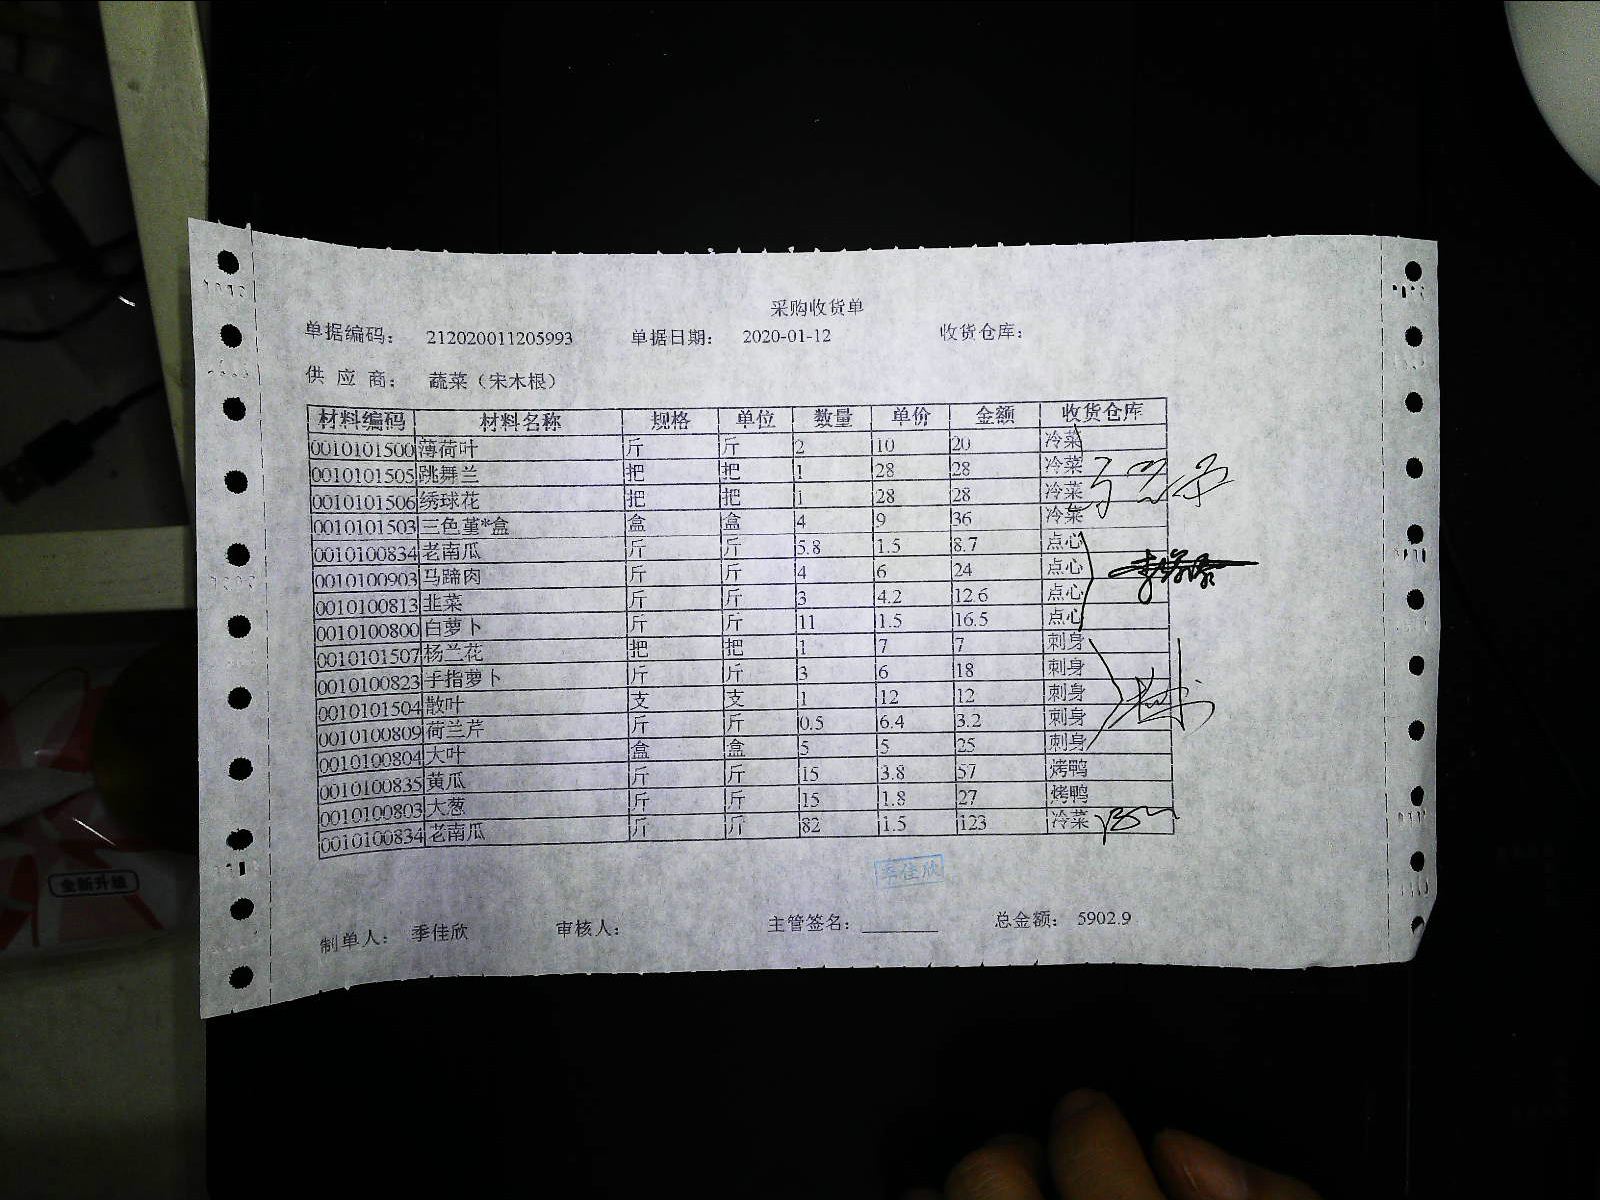 采购收货单
单据编码: 212020011205993 单据日期: 2020-01-12 收货仓库:
供 应 商: 蔬菜（宋木根）
材料编码 材料名称 规格 单位 数量 单价 金额 收货仓库
0010101500 薄荷叶 斤 斤 2 10 20 冷菜
0010101505 跳舞兰 把 把 1 28 28 冷菜
0010101506 绣球花 把 把 1 28 28 冷菜
0010101503 三色堇*盒 盒 盒 4 9 36 冷菜
0010100834 老南瓜 斤 斤 5.8 1.5 8.7 点心
0010100903 马蹄肉 斤 斤 4 6 24 点心
0010100813 韭菜 斤 斤 3 4.2 12.6 点心
0010100800 白萝卜 斤 斤 11 1.5 16.5 点心
0010101507 杨兰花 把 把 1 7 7 刺身
0010100823 手指萝卜 斤 斤 3 6 18 刺身
0010101504 散叶 支 支 1 12 12 刺身
0010100809 荷兰芹 斤 斤 0.5 6.4 3.2 刺身
0010100804 大叶 盒 盒 5 5 25 刺身
0010100835 黄瓜 斤 斤 15 3.8 57 烤鸭
0010100803 大葱 斤 斤 15 1.8 27 烤鸭
0010100834 老南瓜 斤 斤 82 1.5 123 冷菜
季佳欣
制单人: 季佳欣 审核人: 主管签名: 总金额: 5902.9
全新升级